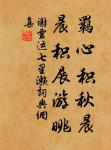 羇心积秋晨
晨积展游眺
谢灵运七里濑词典網
集